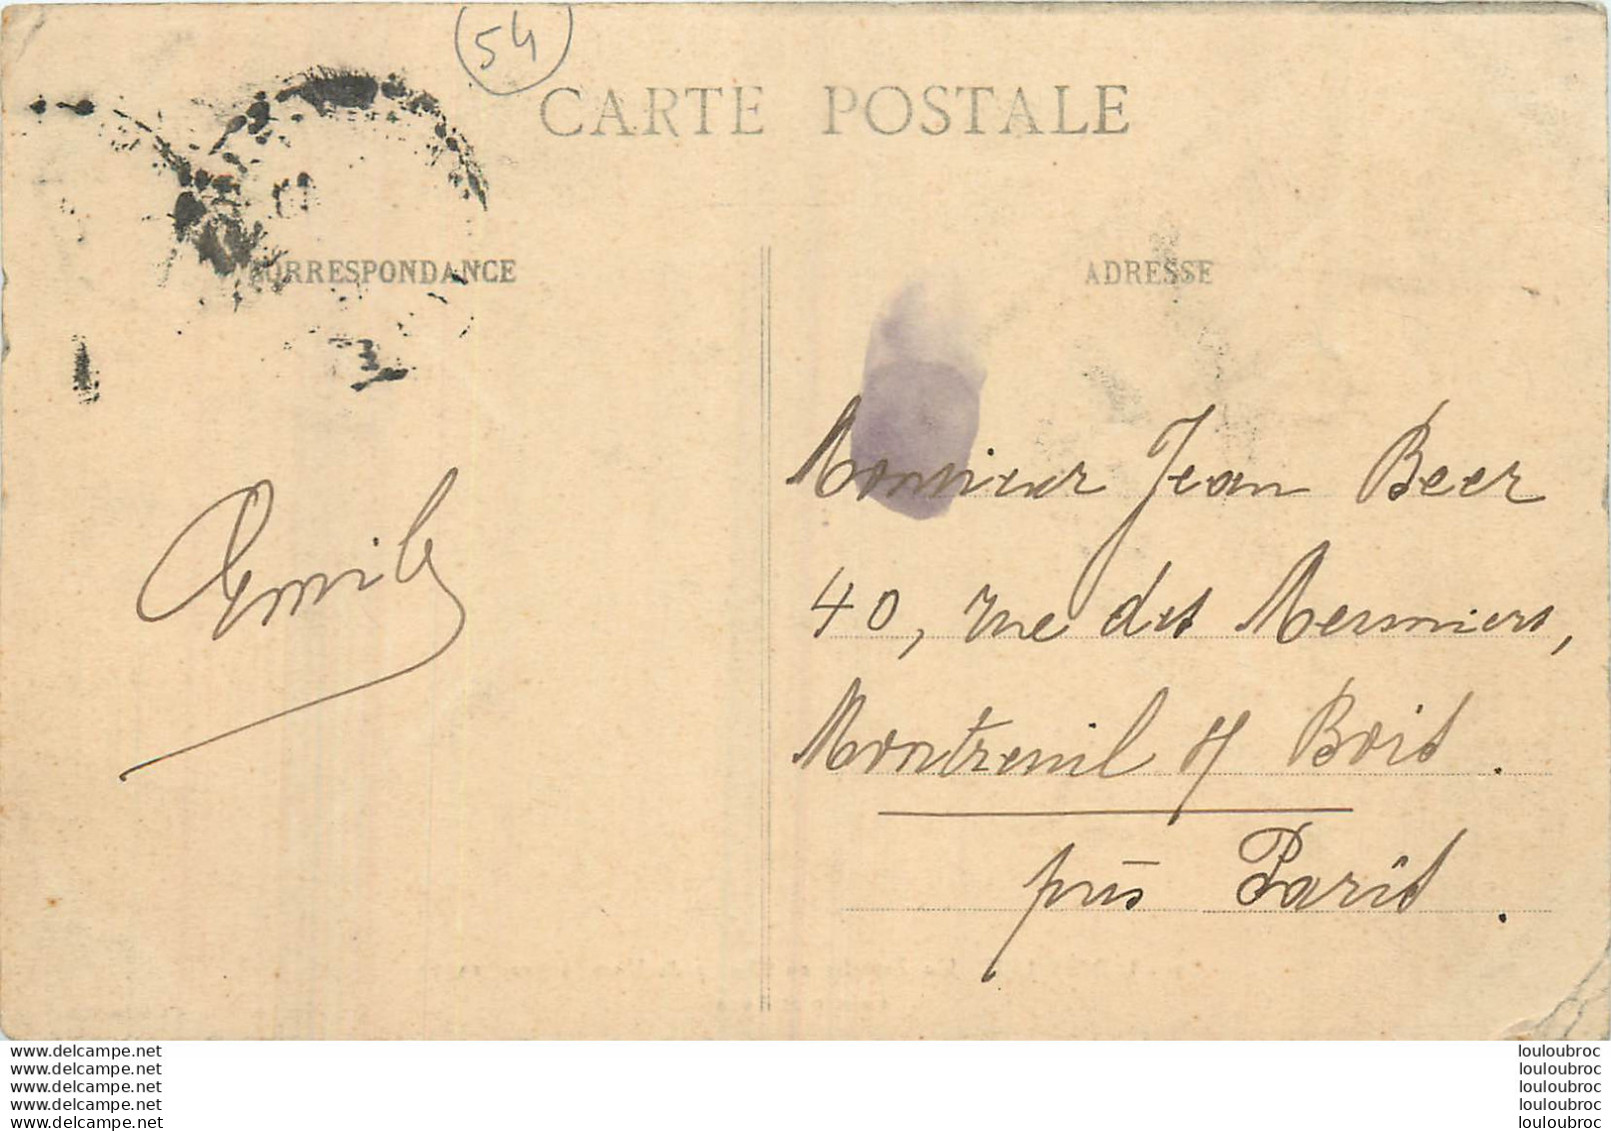 54
CARTE POSTALE
CORRESPONDANCE
ADRESSE
Monsieur Jean Beer
40, rue des Mesmiers,
Emile
Montreuil s/ Bois.
près Paris.
www.delcampe.net
www.delcampe.net
www.delcampe.net
www.delcampe.net
www.delcampe.net
louloubroc
louloubroc
louloubroc
louloubroc
louloubroc